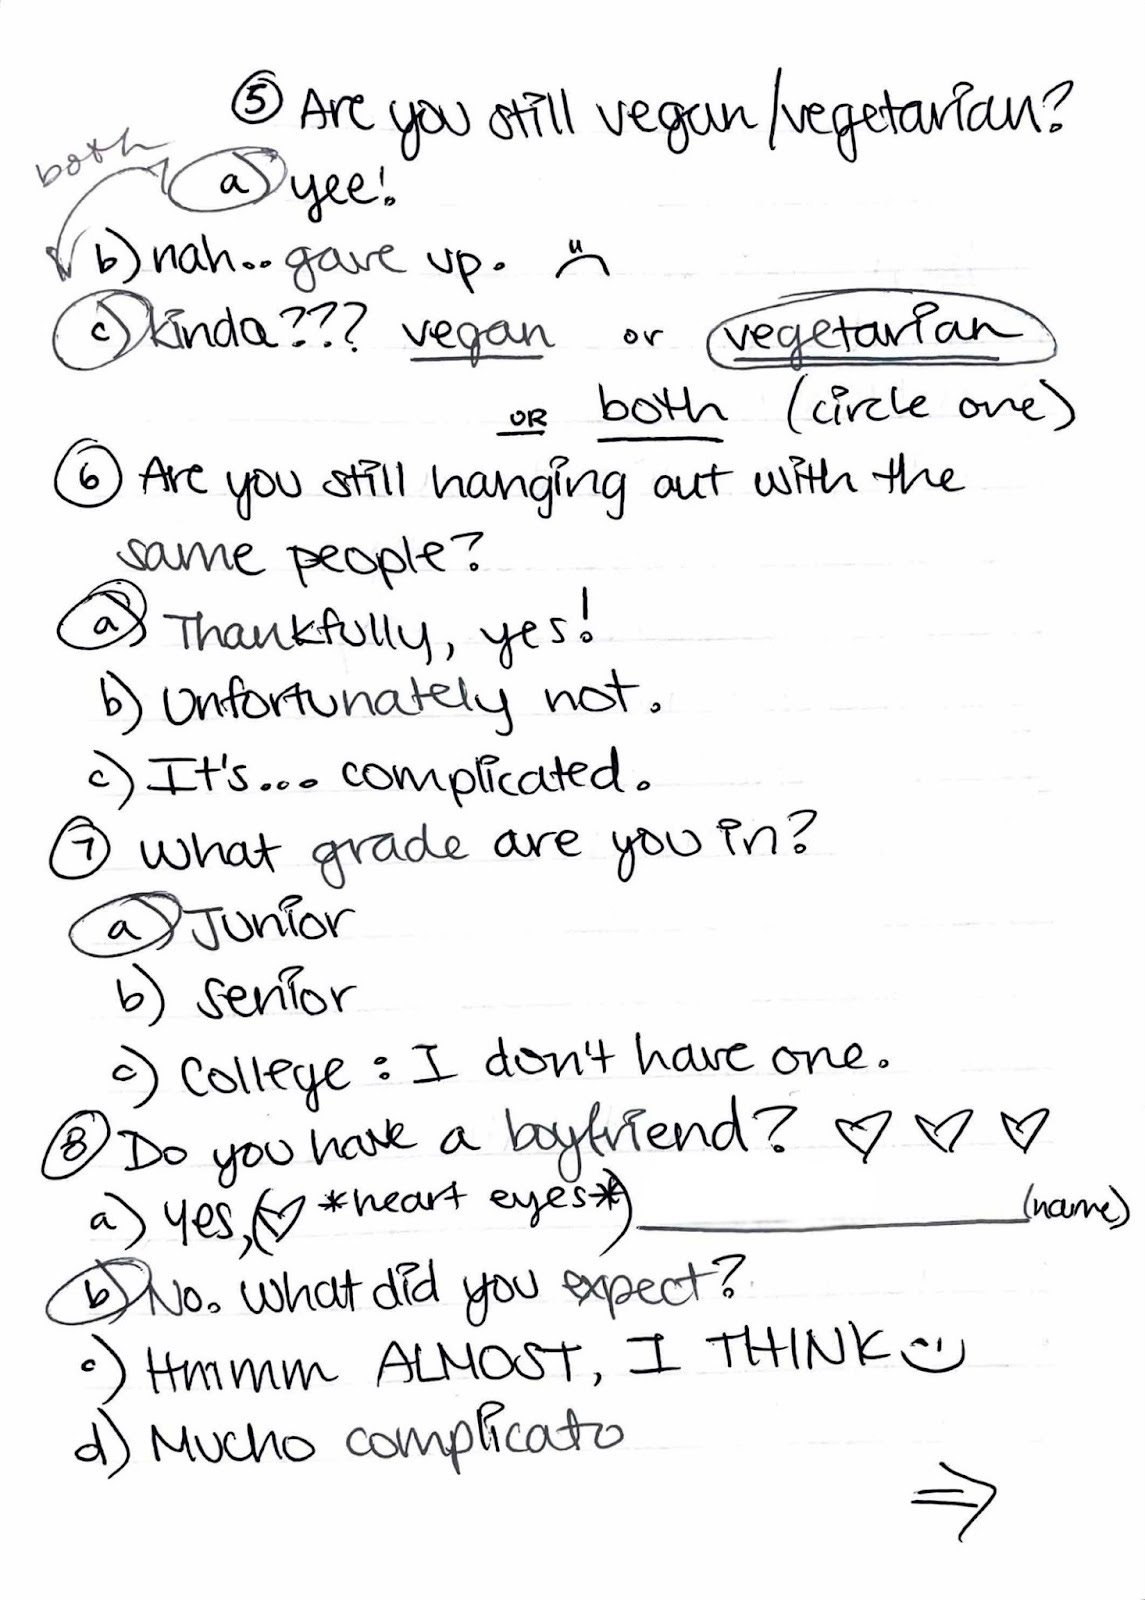 ⑤ Are you still vegan/vegetarian?
both
a) yee!
b) nah.. gave up.
c) kinda??? vegan or vegetarian
OR both (circle one)
⑥ Are you still hanging out with the
same people?
a) Thankfully, yes!
b) Unfortunately not.
c) It's... complicated.
⑦ What grade are you in?
a) Junior
b) Senior
c) College: I don't have one.
⑧ Do you have a boyfriend? ♡ ♡ ♡
a) Yes, (♡ *heart eyes*) ____________ (name)
b) No. What did you expect?
c) Hmmm ALMOST, I THINK
d) Mucho complicato
⇒